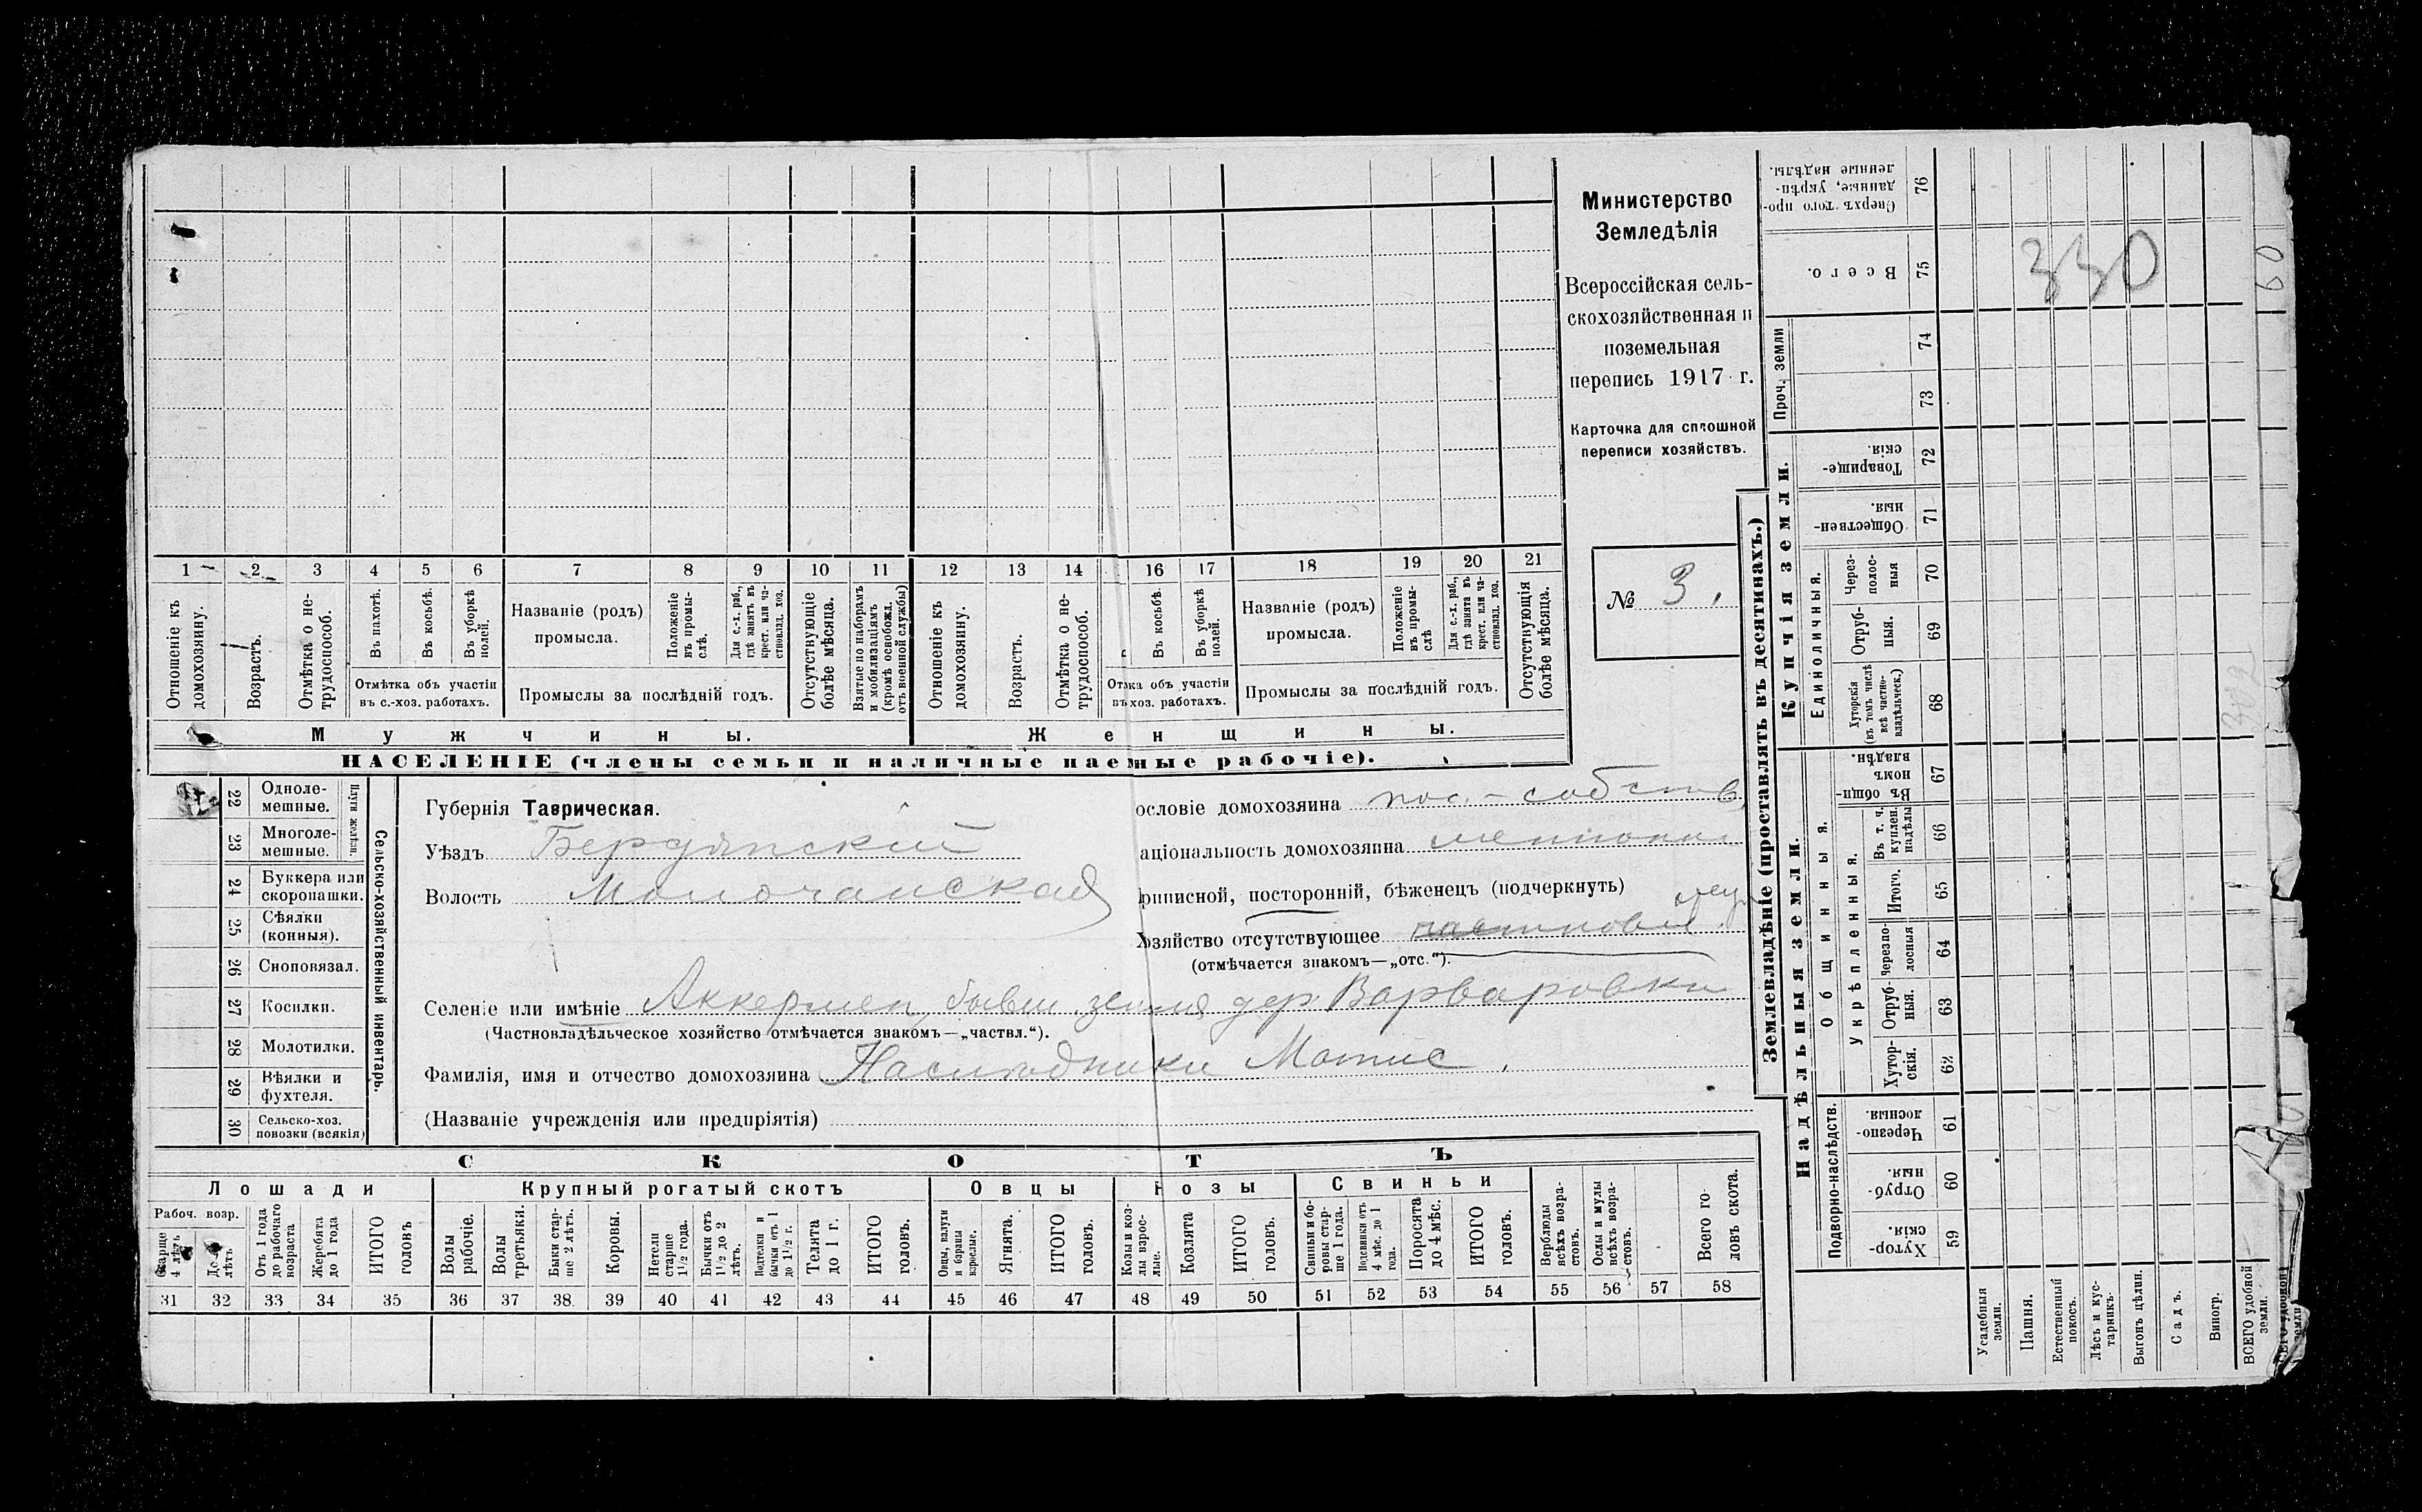 1 2 3 4 5 6 7 8 9 10 11 12 13 14 16 17 18 19 20 21
Отношеніе къ домохозяину.
Возрастъ.
Отмѣтка о не-трудоспособ.
Въ пахотѣ.
Въ косьбѣ.
Въ уборкѣ полей.
Отмѣтка объ участіи
въ с.-хоз. работахъ.
Названіе (родъ)
промысла.
Положеніе въ промы-слѣ.
Для с.-х. раб., гдѣ занятъ въ крест. или ча-стновлад. хоз.
Промыслы за послѣдній годъ.
Отсутствующіе болѣе мѣсяца.
Взятые по наборамъ и мобилизаціямъ (кромѣ освобожд. отъ военной службы)
Отношеніе къ домохозяину.
Возрастъ.
Отмѣтка о не-трудоспособ.
Въ косьбѣ.
Въ уборкѣ полей.
объ участіи
хоз. работахъ.
Названіе (родъ)
промысла.
Положеніе въ промы-слѣ
Для с.-х. раб., гдѣ занята въ крест. или ча-стновлад. хоз.
Промыслы за послѣдній годъ.
Отсутствующія болѣе мѣсяца.
Мужчины.
Женщины.
НАСЕЛЕНІЕ (члены семьи и наличные наемные рабочіе).
Министерство
Земледѣлія
Всероссійская сель-
скохозяйственная и
поземельная
перепись 1917 г.
Карточка для сплошной
переписи хозяйствъ.
№ 3.
22 Одноле-мешные.
23 Многоле-мешные.
Плуги желѣзн.
24 Буккера или скоропашки.
25 Сѣялки (конныя).
26 Сноповязал.
27 Косилки.
28 Молотилки.
29 Вѣялки и фухтеля.
30 Сельско-хоз. повозки (всякія)
Сельско-хозяйственный инвентарь.
Губернія Таврическая.
Уѣздъ Бердянскій
Волость Молочанская
ословіе домохозяина пос.-собств.
аціональность домохозяина
риписной, посторонній, бѣженецъ (подчеркнуть)
Хозяйство отсутствующее
(отмѣчается знакомъ—„отс.“).
Селеніе или имѣніе Аккермен, бывш. земля дер. Варваровки
(Частновладѣльческое хозяйство отмѣчается знакомъ—„частвл.“).
Фамилія, имя и отчество домохозяина Наследники Матис.
(Названіе учрежденія или предпріятія)
СКОТЪ
Лошади
Крупный рогатый скотъ
Овцы
озы
Свиньи
Рабоч. возр.
Старше 4 лѣтъ
До лѣтъ
Отъ 1 года до рабочаго возраста
Жеребята до 1 года
ИТОГО головъ
Волы рабочіе.
Волы третьяки.
Быки стар-ше 2 лѣтъ.
Коровы.
Нетели старше 1½ года.
Бычки отъ 1½ до 2 лѣтъ.
Подтелки и бычки отъ 1 до 1½ г.
Телята до 1 г.
ИТОГО головъ.
Овцы, валухи и бараны взрослые.
Ягнята.
ИТОГО головъ.
Козы и коз-лы взрос-лые.
Козлята
ИТОГО головъ.
Свиньи и бо-ровы стар-ше 1 года.
Подсвинки отъ 4 мѣс. до 1 года.
Поросята до 4 мѣс.
ИТОГО головъ.
Верблюды всѣхъ возра-стовъ.
Ослы и мулы всѣхъ возра-стовъ.
Всего го-ловъ скота.
31 32 33 34 35 36 37 38 39 40 41 42 43 44 45 46 47 48 49 50 51 52 53 54 55 56 57 58
Землевладѣніе (проставлять въ десятинахъ.)
Купчія земли.
Надѣльныя земли.
Сверхъ того про-данные, укрѣп-ленные надѣлы. 76
Всего. 75
330
60
Проч. земли
74
73
Товарище-скія. 72
Обществен-ныя. 71
Единоличныя.
Через-полос-ныя 70
Отруб-ныя. 69
Хуторскія (въ томъ числѣ всѣ частно-владѣльческ.) 68
Общинныя.
Въ общи-номъ владѣн. 67
Укрѣпленныя.
Въ т. ч. куплен. надѣлы 66
Итого. 65
Черезпо-лосныя 64
Отруб-ныя. 63
Хутор-скія. 62
Подворно-наслѣдств.
Черезпо-лосныя. 61
Отруб-ныя. 60
Хутор-скія. 59
Усадебныя земли.
Пашня.
Естественный покосъ.
Лѣсъ и кус-тарникъ.
Выгонъ цѣлин.
Садъ.
Виногр.
ВСЕГО удобной земли.